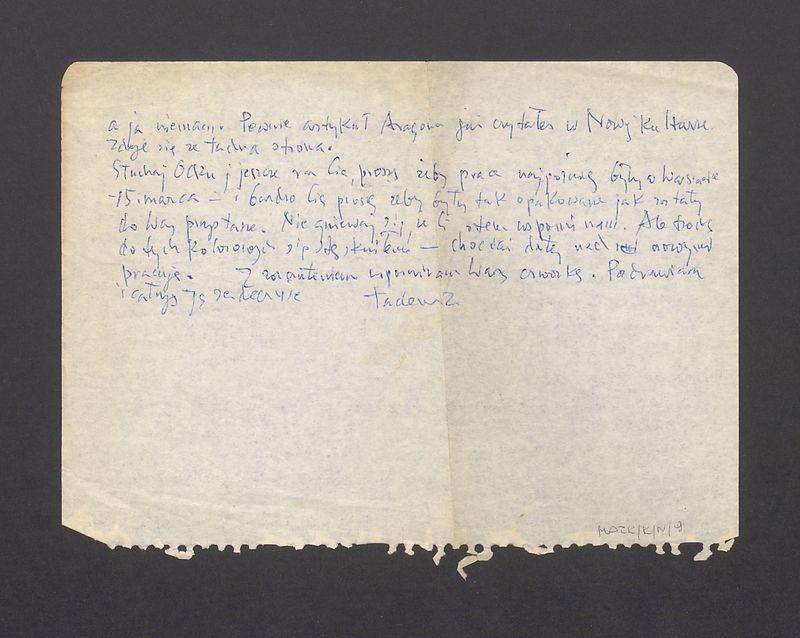 a ja niemam. Pewnie artykuł Aragona już czytałeś w Nowej Kulturze.
zdaje się ze ładna strona.
Słuchaj Olku j jeszcze raz Cię proszę żeby prace najpóźniej były w Warszawie
-15. marca - i bardzo Cię proszę żeby były tak opakowane jak zostały
do Was przysłane. Nie gniewaj się że Ci o tem wspominam. Ale trochę
do tych kolorowych się stęskniłem - chociaż dalej nad nowymi
pracuję. Z rozczuleniem wspominam Waszą czwórkę. Pozdrawiam
i całuję Was serdecznie Tadeusz
MAZK/K/N/9